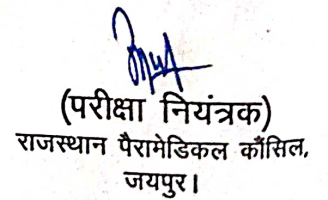 (परीक्षा नियंत्रक)
राजस्थान पैरामेडिकल कौंसिल,
जयपुर।